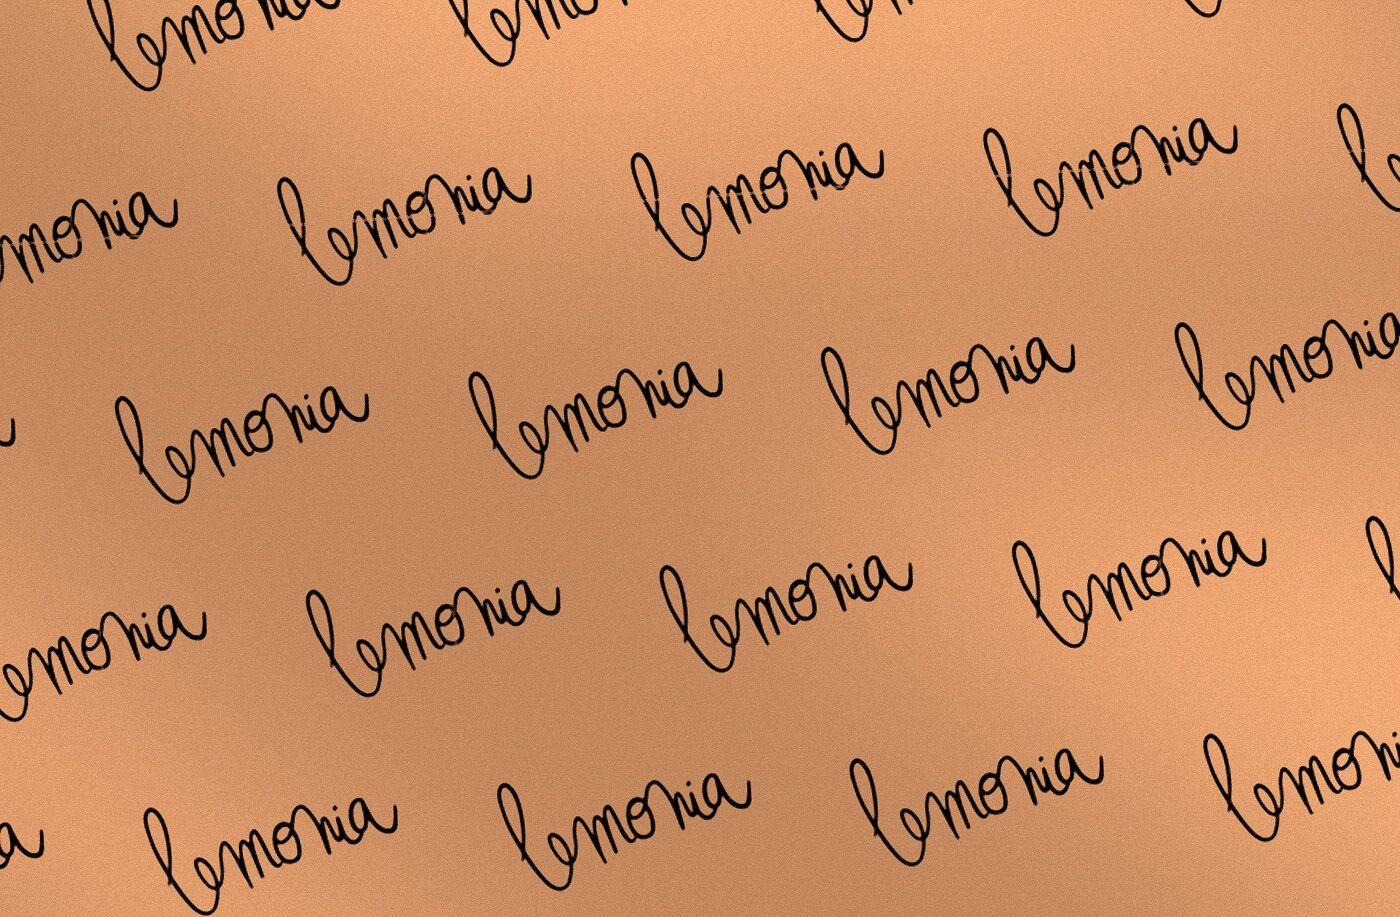 lemonia lemonia
lemonia lemonia lemonia lemonia
lemonia lemonia lemonia lemonia
lemonia lemonia lemonia lemonia
lemonia lemonia lemonia lemonia